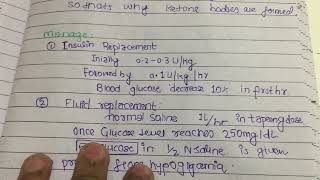 so thats why ketone bodies are formed
Manage:
① Insulin Replacement
Initially 0.2-0.3 U/kg
Followed by 0.1 U/kg/hr
Blood glucose decrease 10% in first hr.
② Fluid replacement:
normal saline 1L/hr in tapering dose
Once Glucose level reaches 250mg/dL
glucose in 1/2 N saline is given
from hypoglycemia